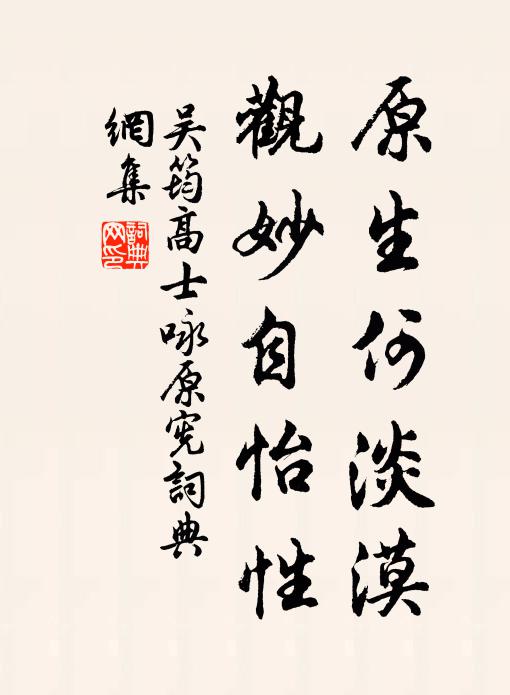 原生何淡漠
觀妙自怡性
吴筠高士咏原宪詞典
網集
詞典
网印